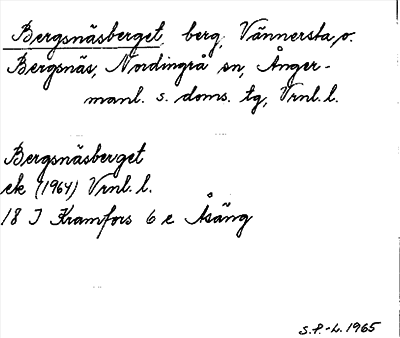 Bergsnäsberget, berg, Vännersta, o.
Bergsnäs, Nordingrå sn, Ånger-
manl. s. doms. tg, Vrnl. l.
Bergsnäsberget
ek (1964) Vrnl. l.
18 I Kramfors 6 e Åsäng
S.P.-L. 1965